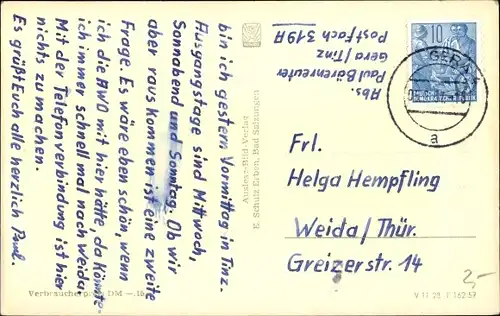 bin ich gestern Vormittag in Tinz.
Ausgangstage sind Mittwoch,
Sonnabend und Sonntag. Ob wir
aber raus kommen ist eine zweite
Frage. Es wäre eben schön, wenn
ich die AWO mit hier hätte, da könnte
ich immer schnell mal nach Weida.
Mit der Telefonverbindung ist hier
nichts zu machen.
Es grüßt Euch alle herzlich Paul.
Abs.
Paul Bärenreuter
Gera/Tinz
Postfach 319 A
10
GERA
a
Frl.
Helga Hempfling
Weida/Thür.
Greizerstr. 14
2,-
Auslese-Bild-Verlag
E. Schulz Erben, Bad Salzungen
Verbraucherpreis DM —.15
V 11 28